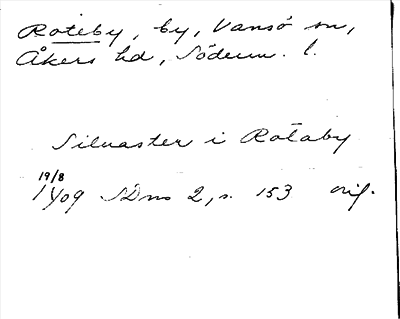 Roteby, by, Vansö sn,
Åkers hd, Söderm. l.
Siluaster i Rotaby
19/8
1409 SDns 2, s. 153 orig.